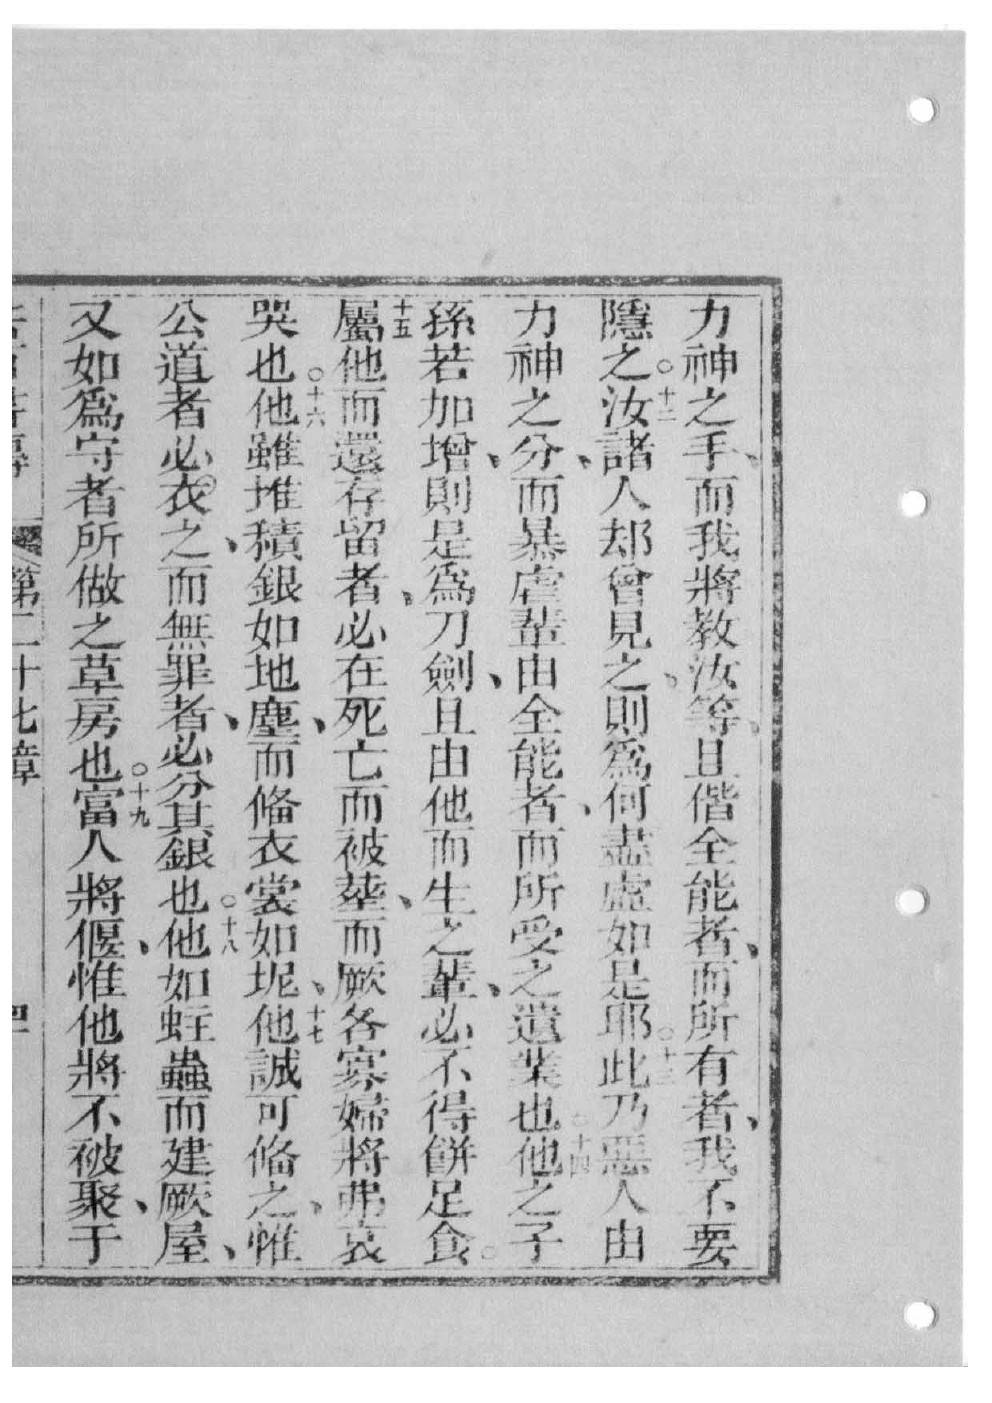 力神之手、而我將教汝等、且偕全能者、而所有者、我不要
隱之。十二汝諸人却曾見之、則爲何盡虛如是耶。十三此乃惡人由
力神之分、而暴虐輩由全能者、而所受之遺業也。十四他之子
孫若加增、則是爲刀劍、且由他而生之輩、必不得餅足食。
十五屬他而還存留者、必在死亡而被葬、而厥各寡婦將弗哀
哭也。十六他雖堆積銀如地塵、而俻衣裳如坭、十七他誠可俻之、惟
公道者必衣之、而無罪者、必分其銀也。十八他如蛀蟲而建厥屋、
又如爲守者所做之草房也。十九富人將偃、惟他將不被聚、于
第二十七章 四